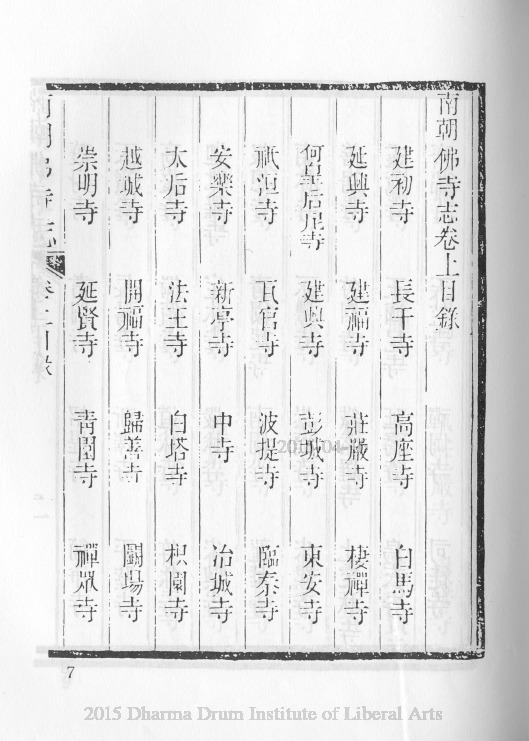 南朝佛寺志卷上目錄
建初寺 長干寺 高座寺 白馬寺
延興寺 建福寺 莊嚴寺 棲禪寺
何皇后尼寺 建興寺 彭城寺 東安寺
祇洹寺 瓦官寺 波提寺 臨秦寺
安樂寺 新亭寺 中寺 冶城寺
太后寺 法王寺 白塔寺 枳園寺
越城寺 開福寺 歸善寺 鬭場寺
崇明寺 延賢寺 青園寺 禪眾寺
南朝佛寺志 卷上目錄
7
2015 Dharma Drum Institute of Liberal Arts